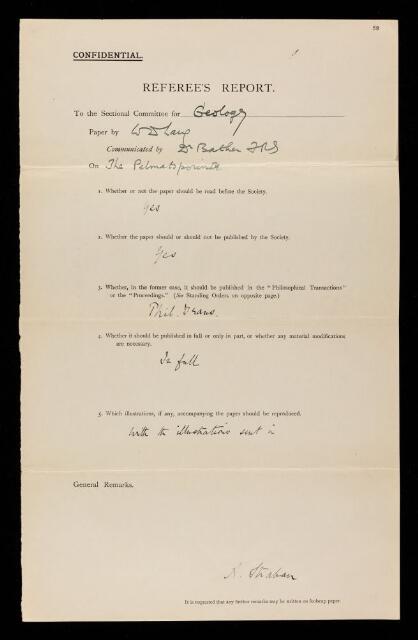 58
CONFIDENTIAL.
REFEREE'S REPORT.
To the Sectional Committee for Geology
Paper by W D Lang
Communicated by Dr Bather FRS
On The Pelmatoporinæ
1. Whether or not the paper should be read before the Society.
Yes
2. Whether the paper should or should not be published by the Society.
Yes
3. Whether, in the former case, it should be published in the "Philosophical Transactions"
or the "Proceedings." (See Standing Orders on opposite page.)
Phil. Trans.
4. Whether it should be published in full or only in part, or whether any material modifications
are necessary.
In full
5. Which illustrations, if any, accompanying the paper should be reproduced.
With the illustrations sent in
General Remarks.
A. Strahan
It is requested that any further remarks may be written on foolscap paper.